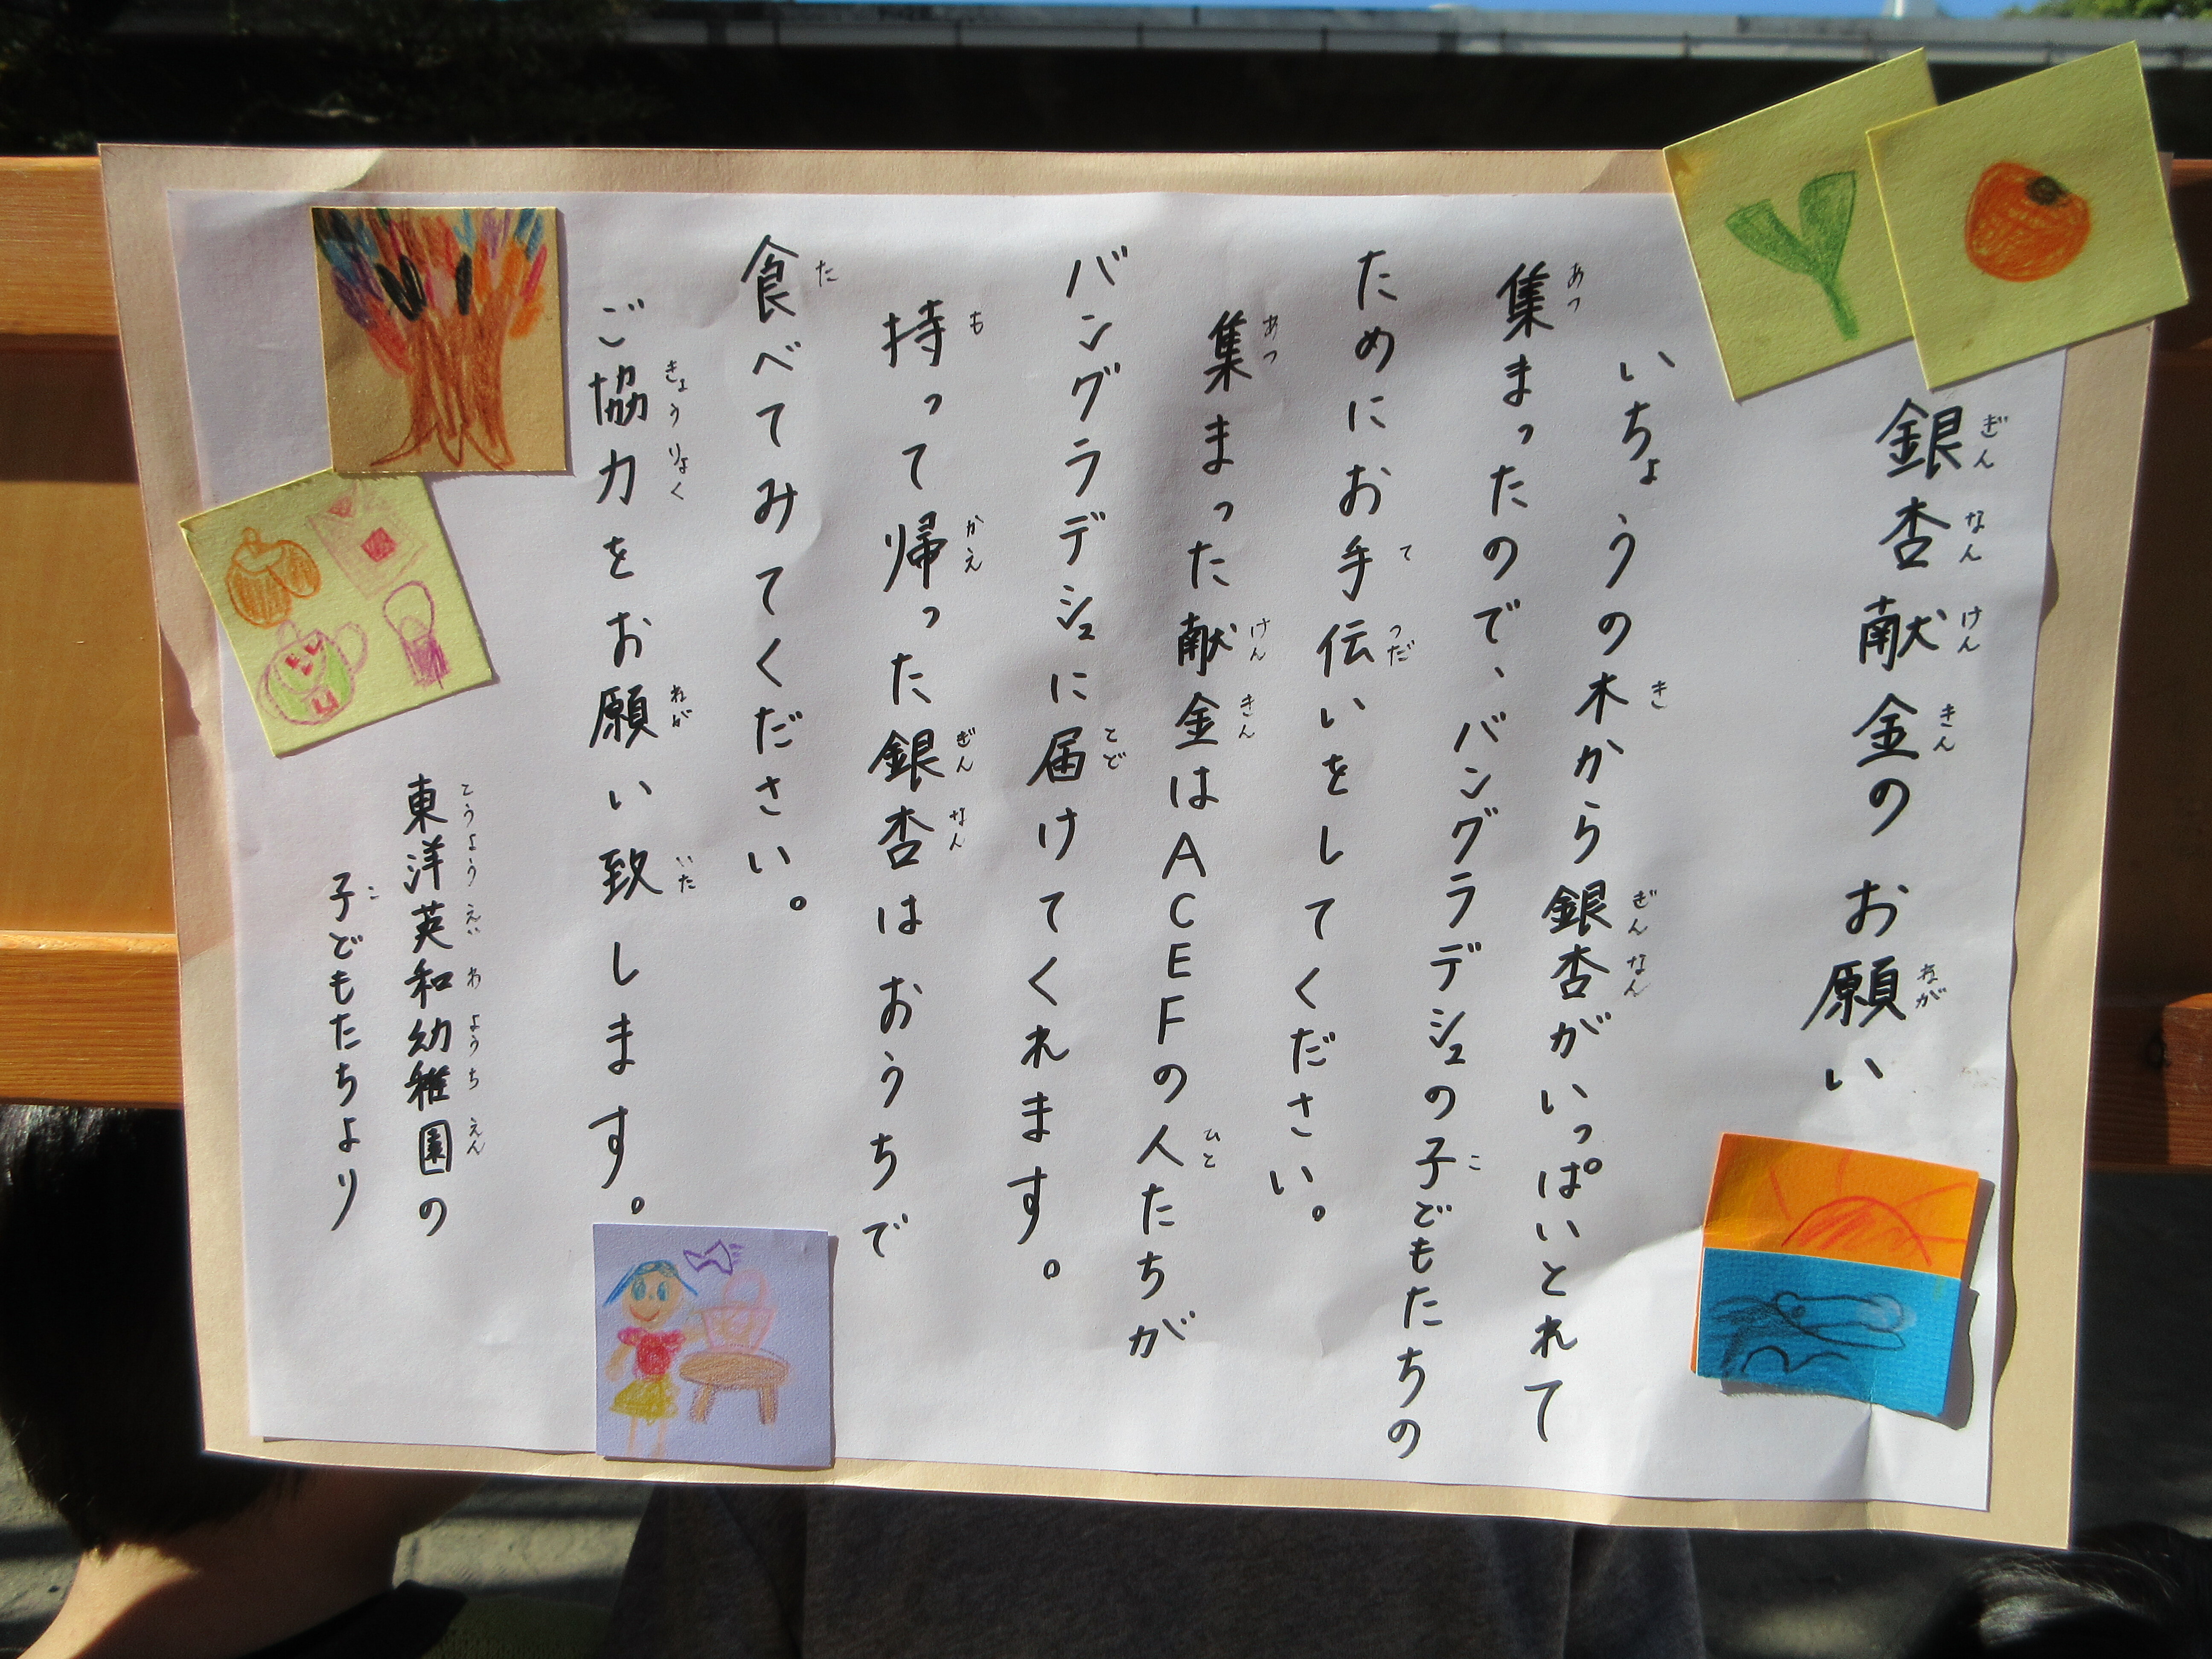 銀杏献金のお願い
いちょうの木から銀杏がいっぱいとれて
集まったので、バングラデシュの子どもたちの
ためにお手伝いをしてください。
集まった献金はACEFの人たちが
バングラデシュに届けてくれます。
持って帰った銀杏はおうちで
食べてみてください。
ご協力をお願い致します。
東洋英和幼稚園の
子どもたちより